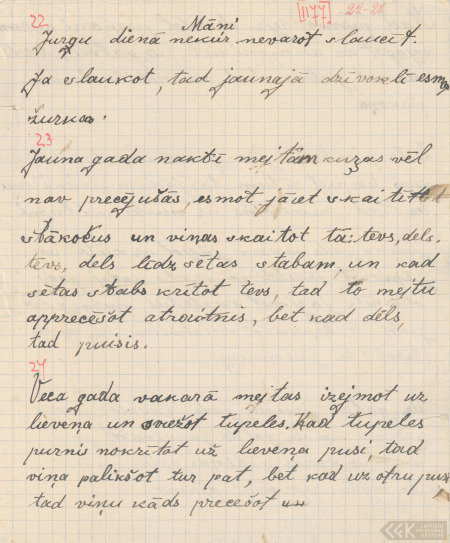 [1177] 22-24
22 Māņi
Jurgu dienā nekur nevarot slaucīt.
Ja slaukot, tad jaunajā dzīvoklī esmot
žurkas.
23
Jauna gada naktī mejtām kuŗas vēl
nav precējušās, esmot jāiet skaitīt
stākatus un viņas skaitot tā: tēvs, dēls,
tēvs, dēls līdz sētas stabam, un kad
sētas stabs krītot tēvs, tad to mejtu
apprecēšot atraitnis, bet kad dēls,
tad puisis.
24
Veca gada vakarā mejtas izejmot uz
lieveņa un sviežot tupeles. Kad tupeles
purnis nokrītot uz lieveņa pusi, tad
viņa palikšot tur pat, bet kad uz otru pusi
tad viņu kāds precēšot